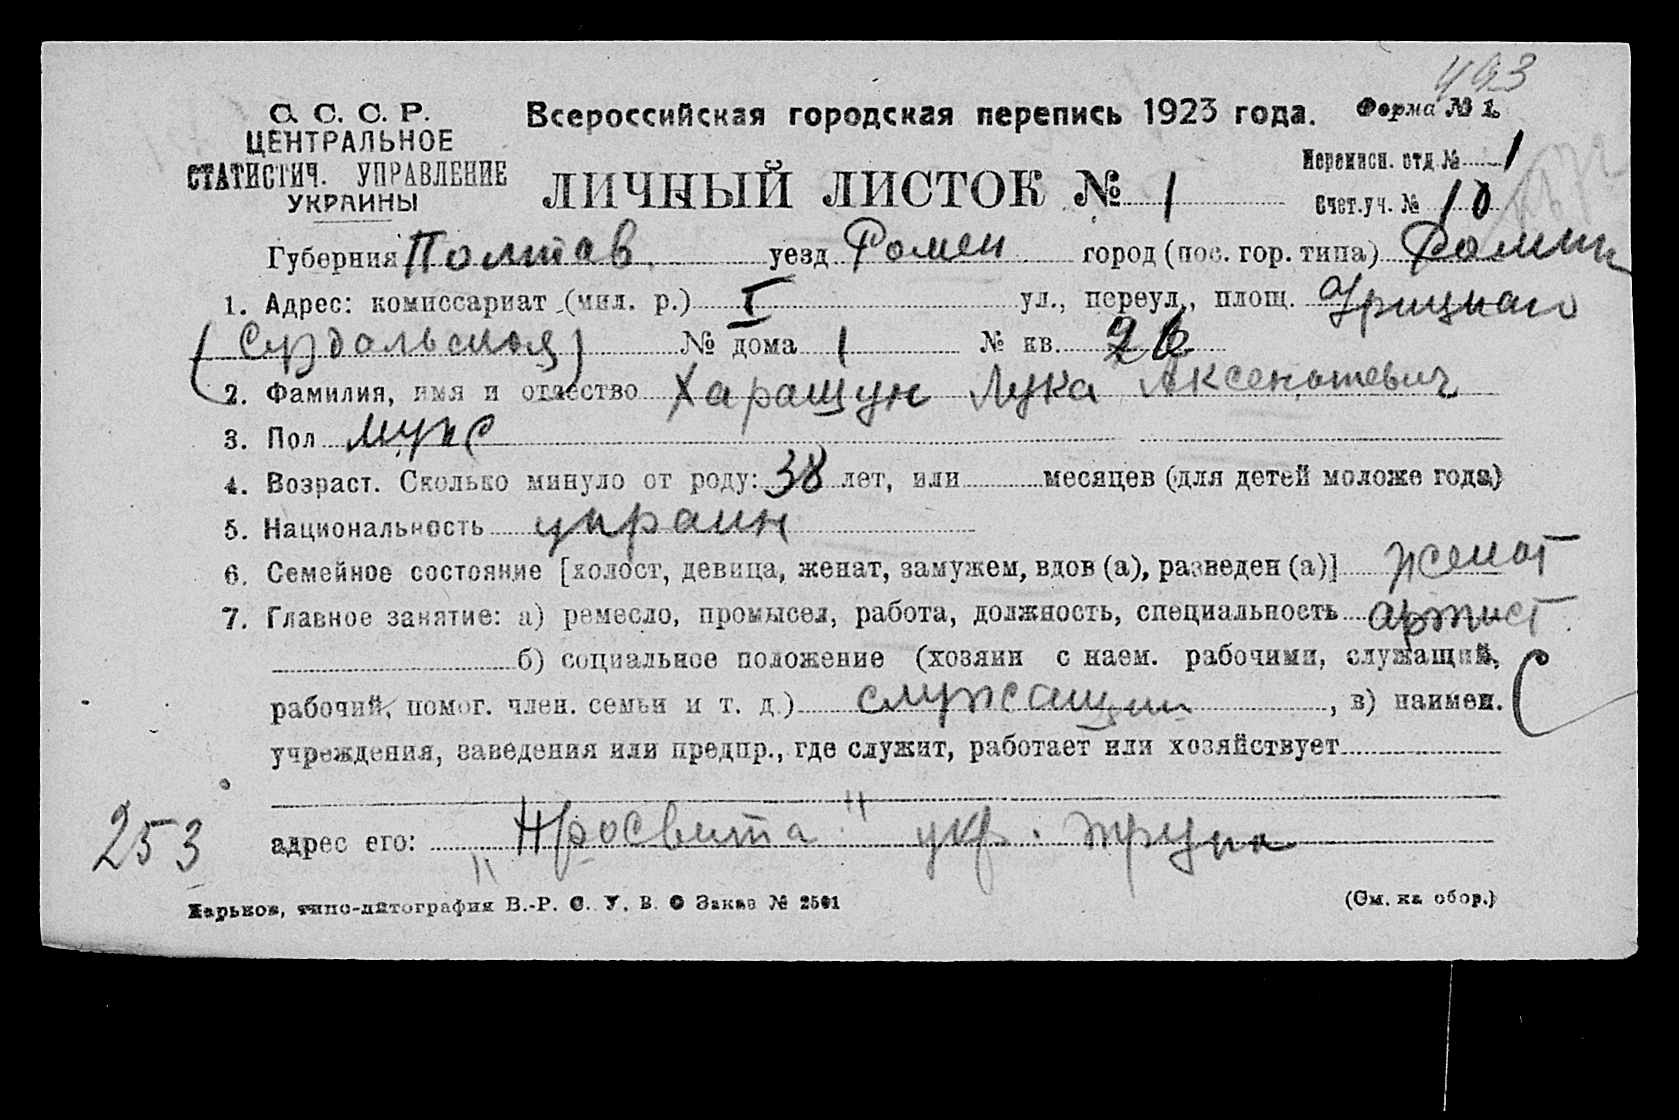 493
С. С. С. Р. Всероссийская городская перепись 1923 года. Форма № 1.
ЦЕНТРАЛЬНОЕ
СТАТИСТИЧ. УПРАВЛЕНИЕ
УКРАИНЫ
ЛИЧНЫЙ ЛИСТОК № 1
Переписн. отд. № 1
Счет. уч. № 10
Губерния Полтав. уезд Ромен город (пос. гор. типа) Ромны
1. Адрес: комиссариат (мил. р.) I ул., переул., площ. Урицкаго
(Суздальская) № дома 1 № кв. 26
2. Фамилия, имя и отчество Харащун Лука Аксентьевич
3. Пол муж
4. Возраст. Сколько минуло от роду: 38 лет, или месяцев (для детей моложе года)
5. Национальность украин
6. Семейное состояние [холост, девица, женат, замужем, вдов (а), разведен (а)] женат
7. Главное занятие: а) ремесло, промысел, работа, должность, специальность артист.
б) социальное положение (хозяин с наем. рабочими, служащий,
рабочий, помог. член. семьи и т. д.) служащий, в) наимен.
учреждения, заведения или предпр., где служит, работает или хозяйствует
253
адрес его: „Просвита" укр. трупа
Харьков, типо-литография В.-Р. С. У. В. О Заказ № 2501 (См. на обор.)